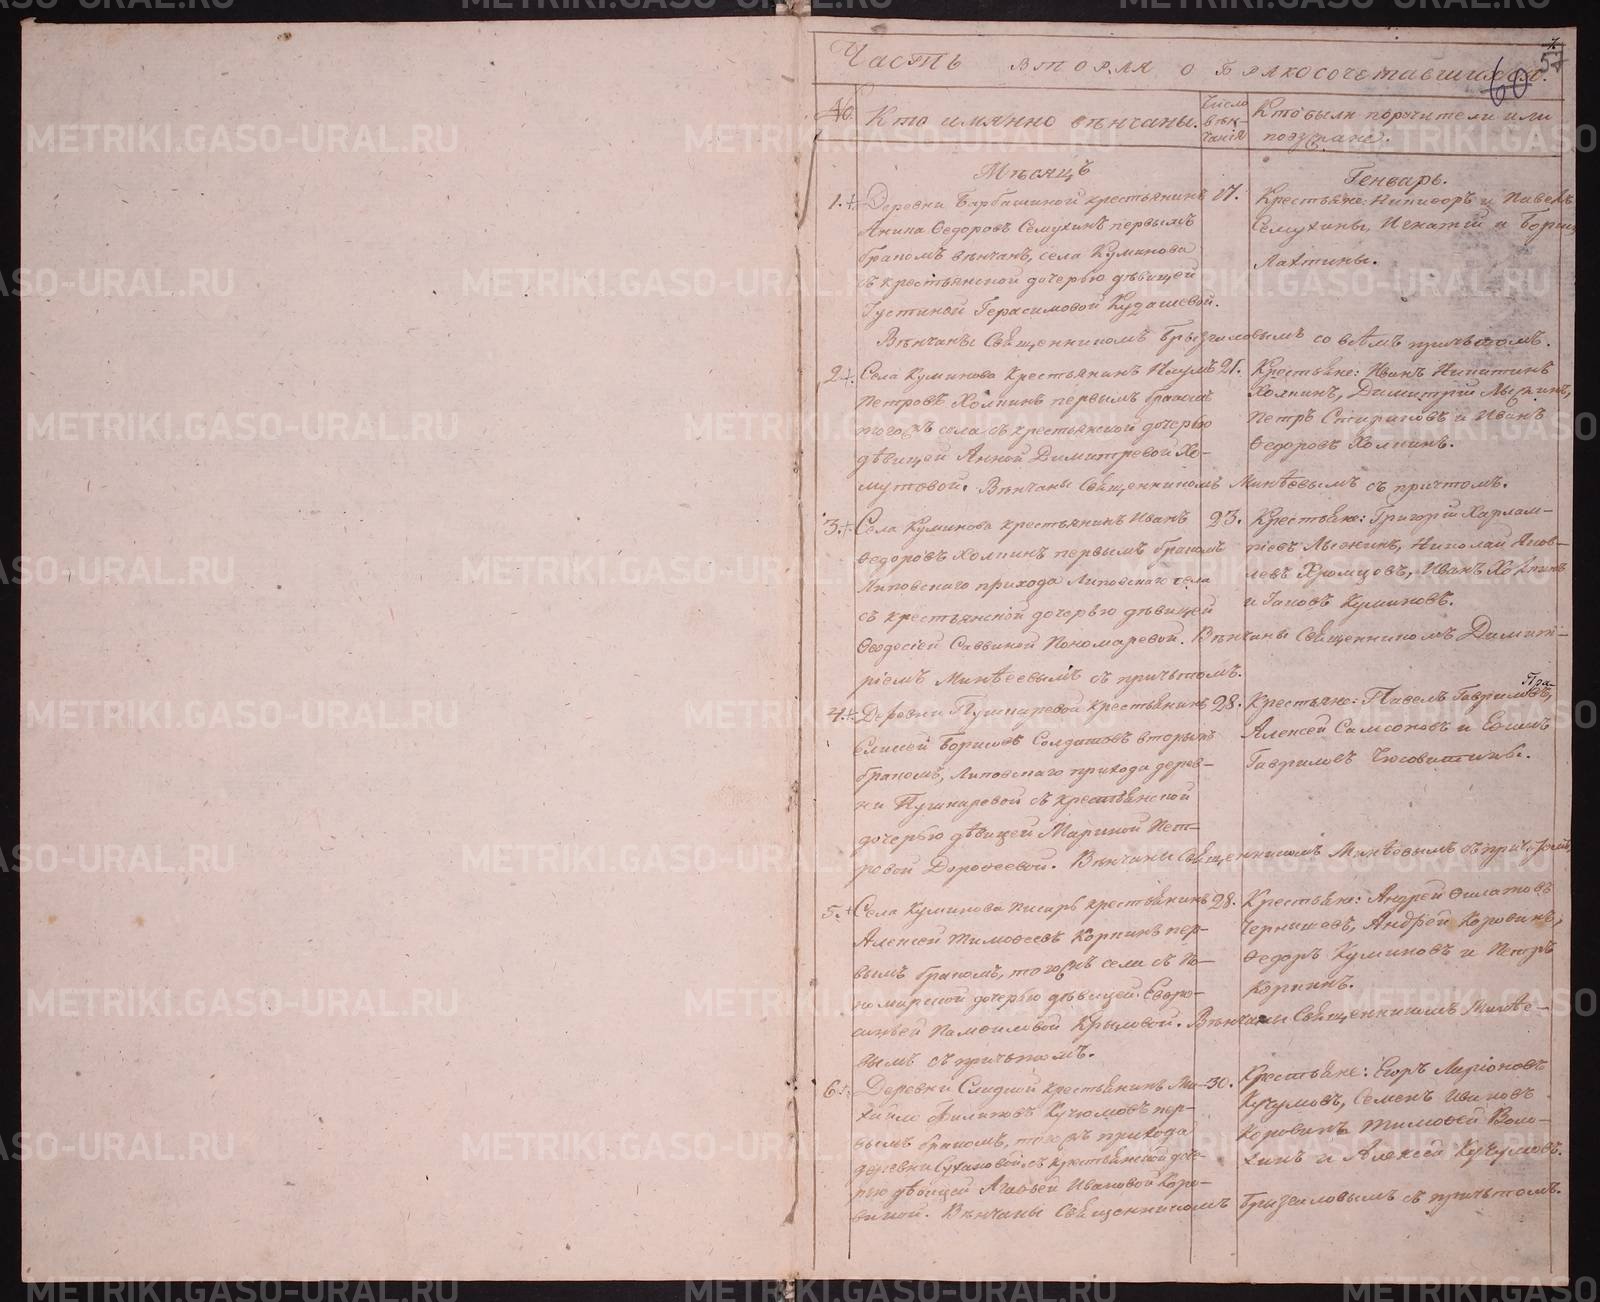 Часть вторая о бракосочетавшихся.
57
60
№
Кто имянно венчаны.
Число венчания
Кто были поручители или поезжане.
Месяцъ Генварь.
1. Деревни Барбашиной крестьянинъ
Федоровъ Семухинъ первымъ
бракомъ венчанъ, села Куминова
съ крестьянской дочерью девицей
Густиной Герасимовой Кудашевой.
17.
Крестьяне: Никифоръ и Павелъ
Семухины, Игнатій и Борисъ
Лахтины.
Венчаны Священникомъ со всемъ причьтомъ.
2. Села Куминова Крестьянинъ Наумъ
Петровъ Холкинъ первымъ бракомъ
того же села съ крестьянской дочерью
девицей Анной Димитревой Хо-
мутовой. Венчаны Священникомъ Минеевымъ съ причтомъ.
21.
Крестьяне: Иванъ Никитинъ
Холкинъ, Димитрій Лыскинъ,
Петръ Спиридоновъ и Иванъ
Федоровъ Холкинъ.
3. Села Куминова крестьянинъ Иванъ
Федоровъ Холкинъ первымъ бракомъ
Липовскаго прихода Липовскаго села
съ крестьянской дочерью девицей
Феодосіей Саввиной Пономаревой. Венчаны Священникомъ Димит-
ріемъ Минеевымъ съ причьтомъ.
23.
Крестьяне: Григорій Харлам-
піевъ Лыскинъ, Николай Яков-
левъ Хромцовъ, Иванъ Холкинъ
и Іаковъ Куминовъ.
4. Деревни Пушкаревой крестьянинъ
Елисей Борисовъ Солдатовъ вторымъ
бракомъ, Липовскаго прихода дерев-
ни Пушкаревой съ крестьянской
дочерью девицей Мариной Пет-
ровой Дорофеевой. Венчаны Священникомъ Минеевымъ съ причьтомъ.
28.
Крестьяне: Павелъ Гавриловъ,
Алексей Самсоновъ и Ефимъ
Гавриловъ Чусовитины.
5. Села Куминова Писарь крестьянинъ
Алексей Тимофеевъ Коркинъ пер-
вымъ бракомъ, того же села съ По-
номарской дочерью девицей Евфро-
синьей Памфиловой Крыловой. Венчаны Священникомъ Минее-
вымъ съ причьтомъ.
28.
Крестьяне: Андрей Филатовъ
Чернышевъ, Андрей Коровинъ,
Федоръ Куминовъ и Петръ
Коркинъ.
6. Деревни Крестьянинъ Ми-
хайло Филиповъ Кучюмовъ пер-
вымъ бракомъ, того же прихода
деревни Сухановой, съ крестьянской доче-
рью девицей Агафьей Ивановой Коро-
виной. Венчаны Священникомъ съ причьтомъ.
30.
Крестьяне: Егоръ Ларіоновъ
Кучумовъ, Семенъ Ивановъ
Коровинъ Тимофей Воло-
хинъ и Алексей Кучумовъ.
METRIKI.GASO-URAL.RU